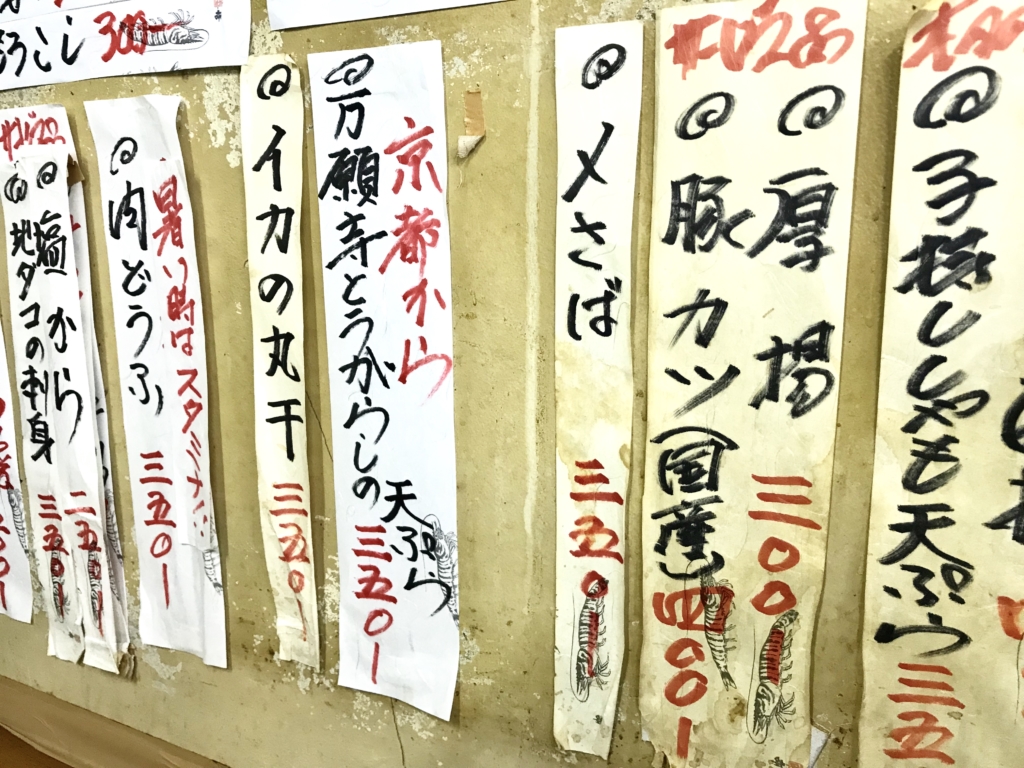 @子持ししゃも天ぷら 三五
@厚揚 三〇〇
@豚カツ(国産) 四〇〇ー
@〆さば 三五〇ー
京都から
@万願寺とうがらしの天ぷら 三五〇ー
@イカの丸干 三五〇ー
暑い時はスタミナ!!
@肉どうふ 三五〇ー
@塩から 二五〇ー
@地ダコの刺身 三五〇ー
ろこし 300